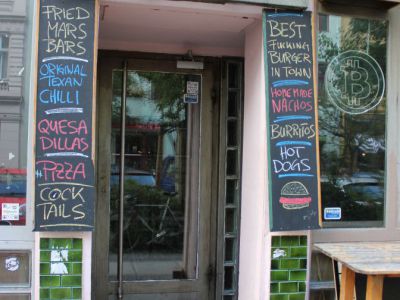 FRIED
MARS
BARS
ORIGINAL
TEXAN
CHILLI
QUESA
DILLAS
PIZZA
COCK
TAILS
BEST
FUCKING
BURGER
IN TOWN
HOMEMADE
NACHOS
BURRITOS
HOT
DOGS